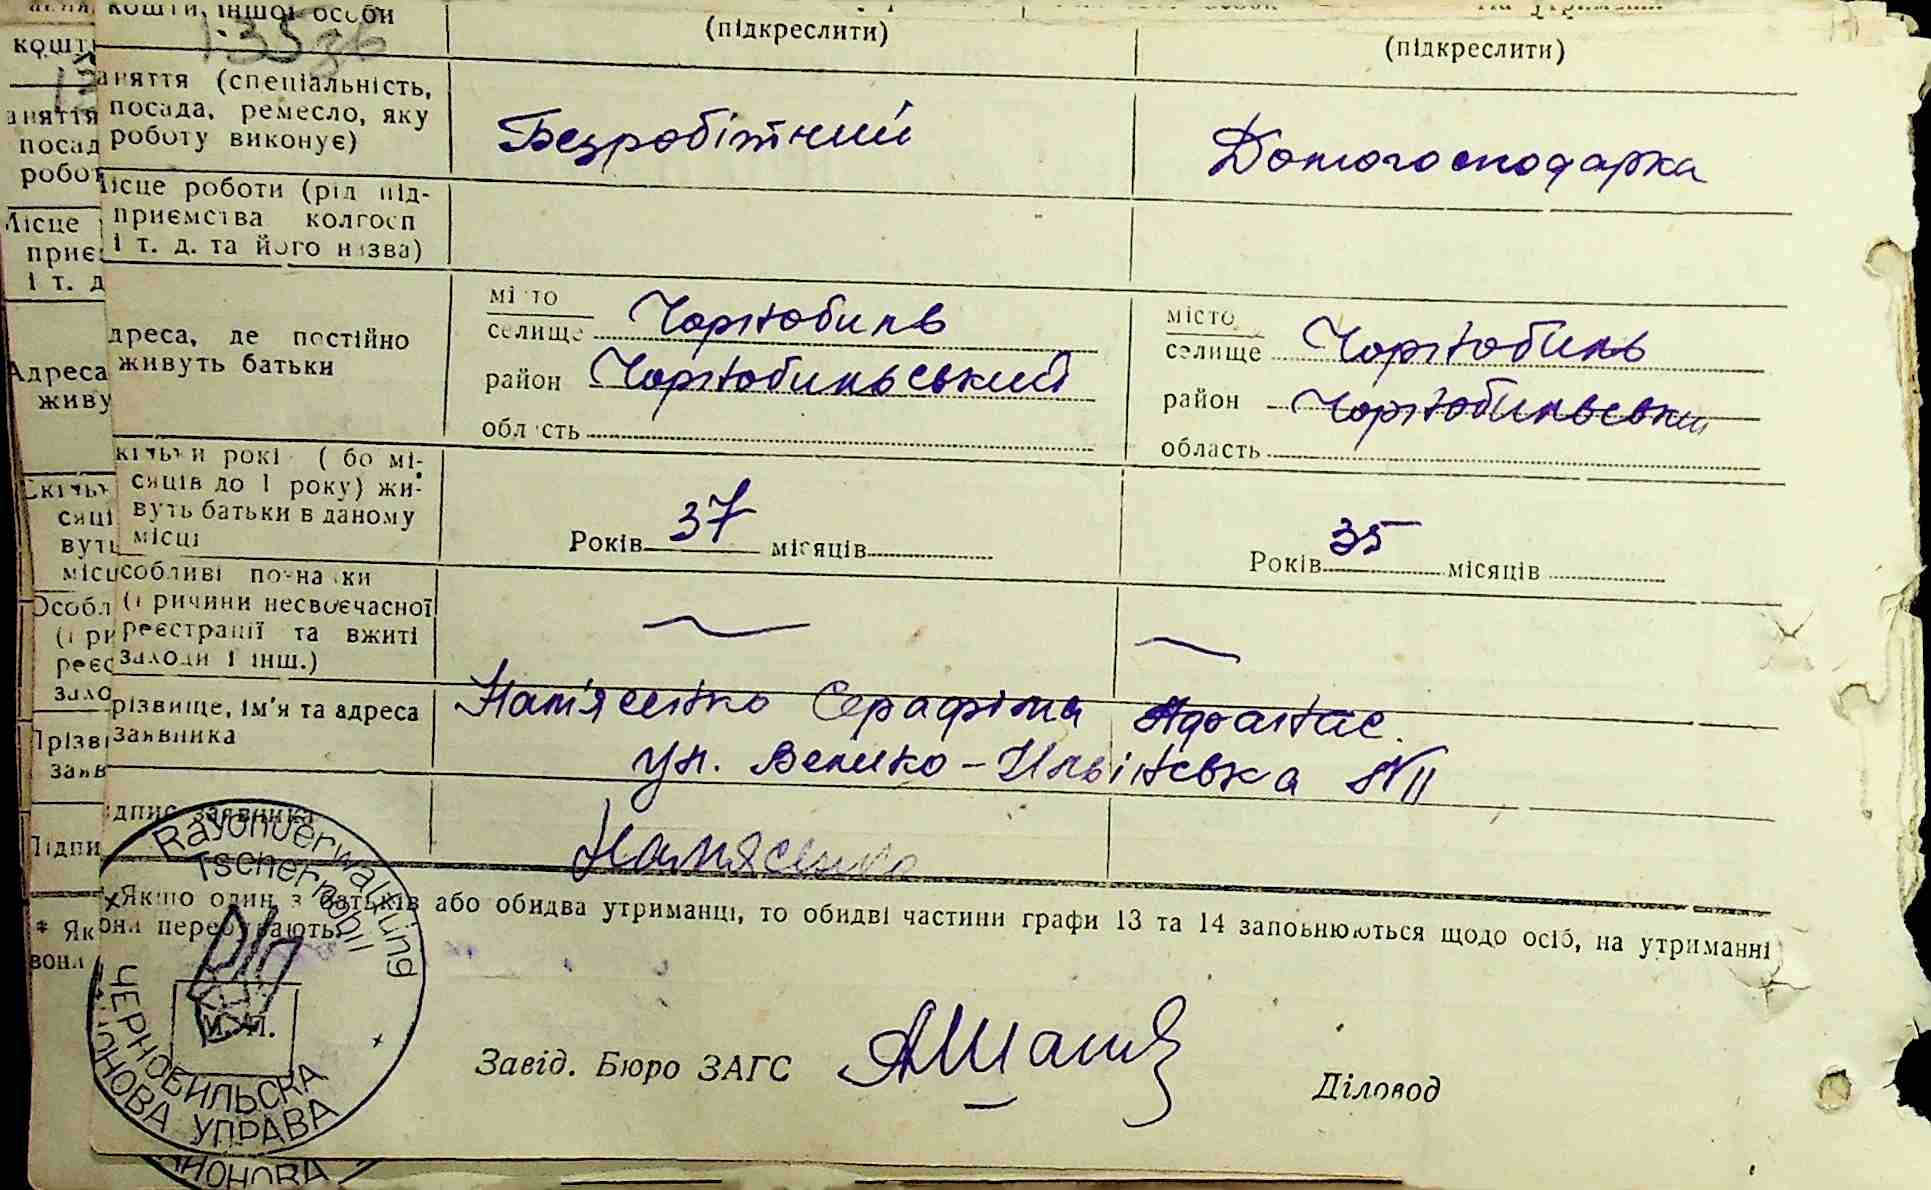 кошти, іншої особи
(підкреслити)
(підкреслити)
аняття (спеціальність,
посада, ремесло, яку
роботу виконує)
Безробітний
Домогосподарка
ісце роботи (рід під-
приємства колгосп
і т. д. та його назва)
дреса, де постійно
живуть батьки
місто
селище Чорнобиль
район Чорнобильський
область
місто
селище Чорнобиль
район Чорнобильський
область
кільки років ( бо мі-
сяців до 1 року) жи-
вуть батьки в даному
місці
Років 37 місяців
Років 35 місяців
собливі позначки
(причини несвоєчасної
реєстрації та вжиті
заходи і інш.)
різвище, ім'я та адреса
заявника
Серафіма Афанас.
ул. Велико-Ильінська №11
ідпис заявника
Якщо один з батьків або обидва утриманці, то обидві частини графи 13 та 14 заповнюються щодо осіб, на утриманні
вони перебувають.
Rayonverwaltung
Tschernobil
М. П.
ЧЕРНОБИЛЬСКА
ЙОНОВА УПРАВА
Завід. Бюро ЗАГС
Діловод